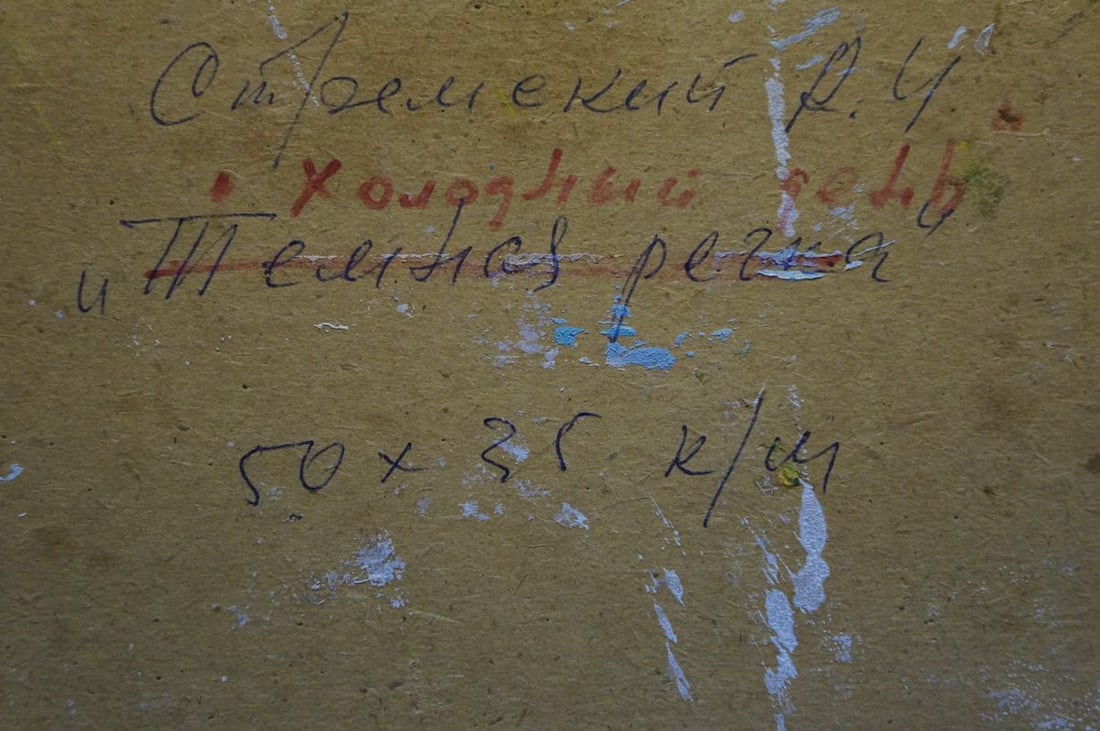 Стремский В.И.
"Холодный день"
"Темная речка"
50 х 35 к/м